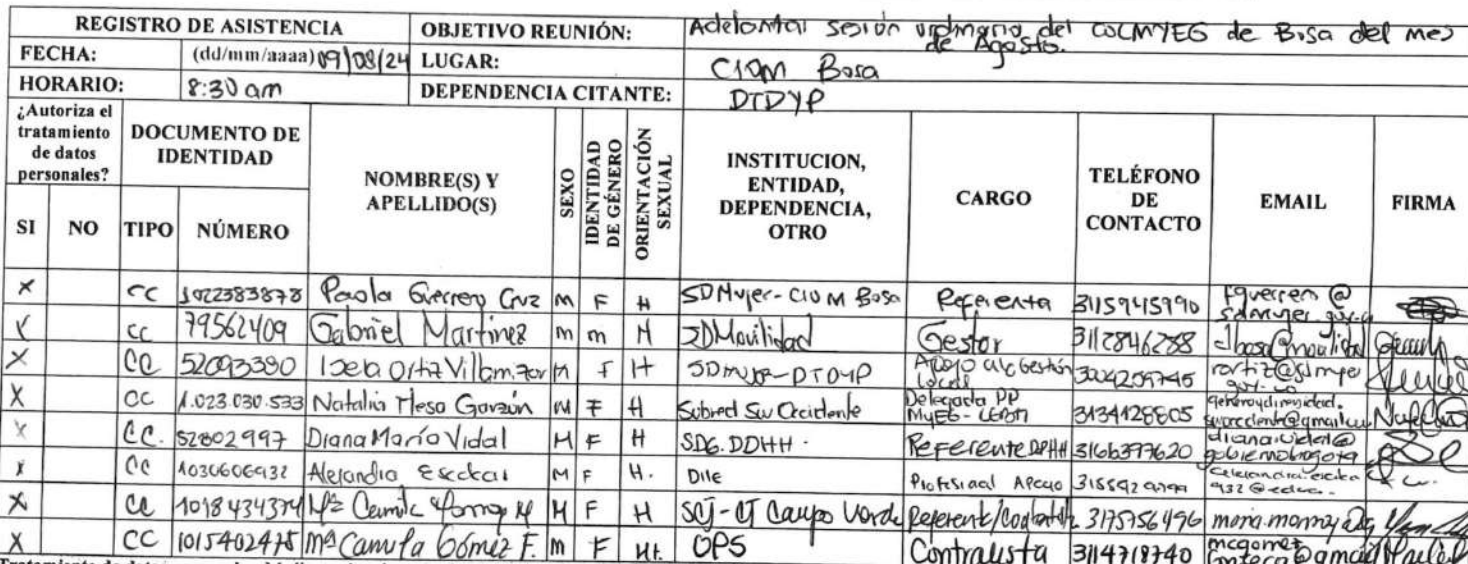 REGISTRO DE ASISTENCIA OBJETIVO REUNIÓN: Adelantar sesión ordinaria del COLMYEG de Bosa del mes
de Agosto.
FECHA: (dd/mm/aaaa) 09/08/24 LUGAR: CIOM Bosa
HORARIO: 8:30 am DEPENDENCIA CITANTE: DTDYP
¿Autoriza el tratamiento de datos personales? DOCUMENTO DE IDENTIDAD NOMBRE(S) Y APELLIDO(S) SEXO IDENTIDAD DE GÉNERO ORIENTACIÓN SEXUAL INSTITUCION, ENTIDAD, DEPENDENCIA, OTRO CARGO TELÉFONO DE CONTACTO EMAIL FIRMA
SI NO TIPO NÚMERO
X CC 1022383878 Paola Guerrero Cruz M F H SDMujer-CIOM Bosa Referenta 3115945990 pguerrero@
sdmujer.gov.co
X CC 79562409 Gabriel Martinez m m H SDMovilidad Gestor 3112846288
X CC 52093380 Isela Ortiz M F H SDMujer-DTDYP Apoyo a la Gestión
Local 3004259745
X CC 1.023.030.533 Natalia Mesa Garzón M F H Subred Sur Occidente Delegada PP
MyEG - LGBTI 3134128805 generoydiversidad.
suroccidente@gmail.com
X CC. 52802997 Diana María Vidal M F H SDG. DDHH. Referente DDHH 3166377620 diana.vidal@
gobiernobogota
X CC 1030606932 Alejandra M F H. Dile Profesional Apoyo
X CC 1018434374 Mª Camila M H F H SCJ-CTJ Campo Verde Referente/ 3175756496
X CC 1015402475 Mª Camila Gómez F. m F Ht. OPS Contratista 3114718740 mcgomez